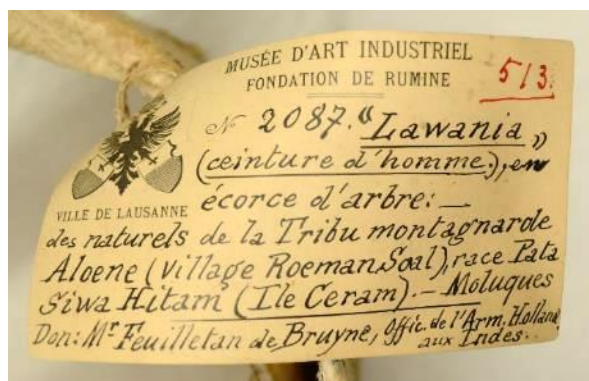 MUSÉE D'ART INDUSTRIEL
FONDATION DE RUMINE
513.
No 2087. "Lawania"
(ceinture d'homme), en
écorce d'arbre: —
VILLE DE LAUSANNE
des naturels de la Tribu montagnarde
Aloene (village Roeman Soal), race Pata
Siwa Hitam (Ile Ceram). — Moluques
Don: Mr Feuilletan de Bruyne, Offic. de l'Arm. Holland.
aux Indes.